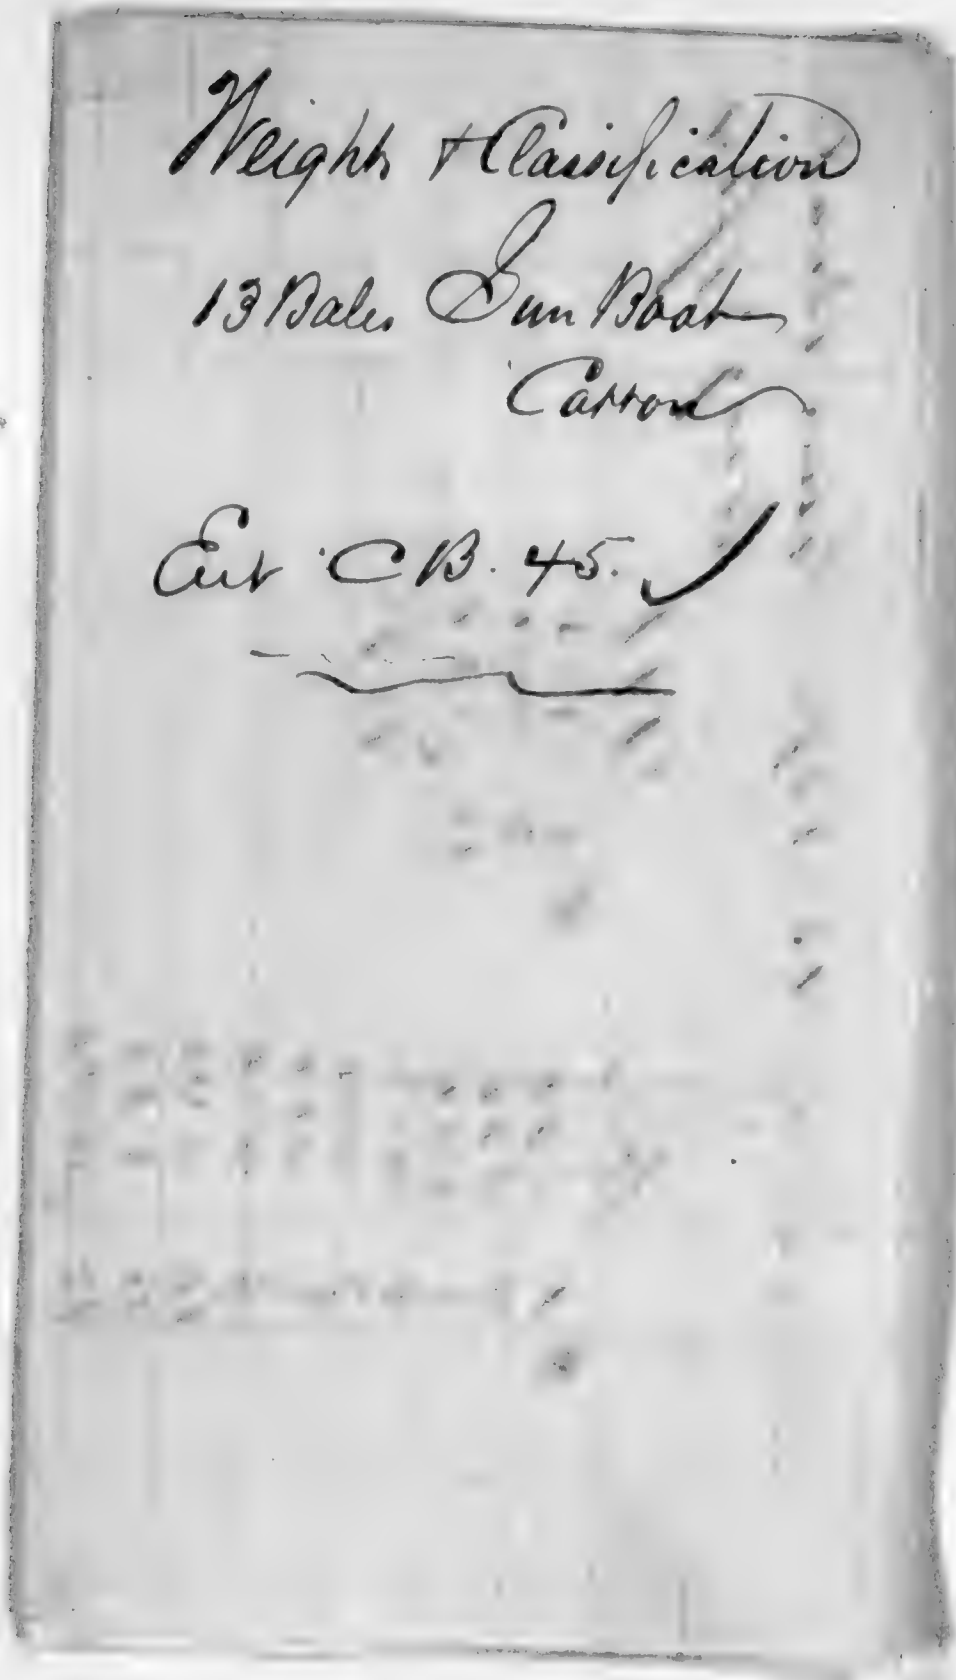 Weights & Classification
13 Bales Gun Boat
Carron
Ent C B. 45.